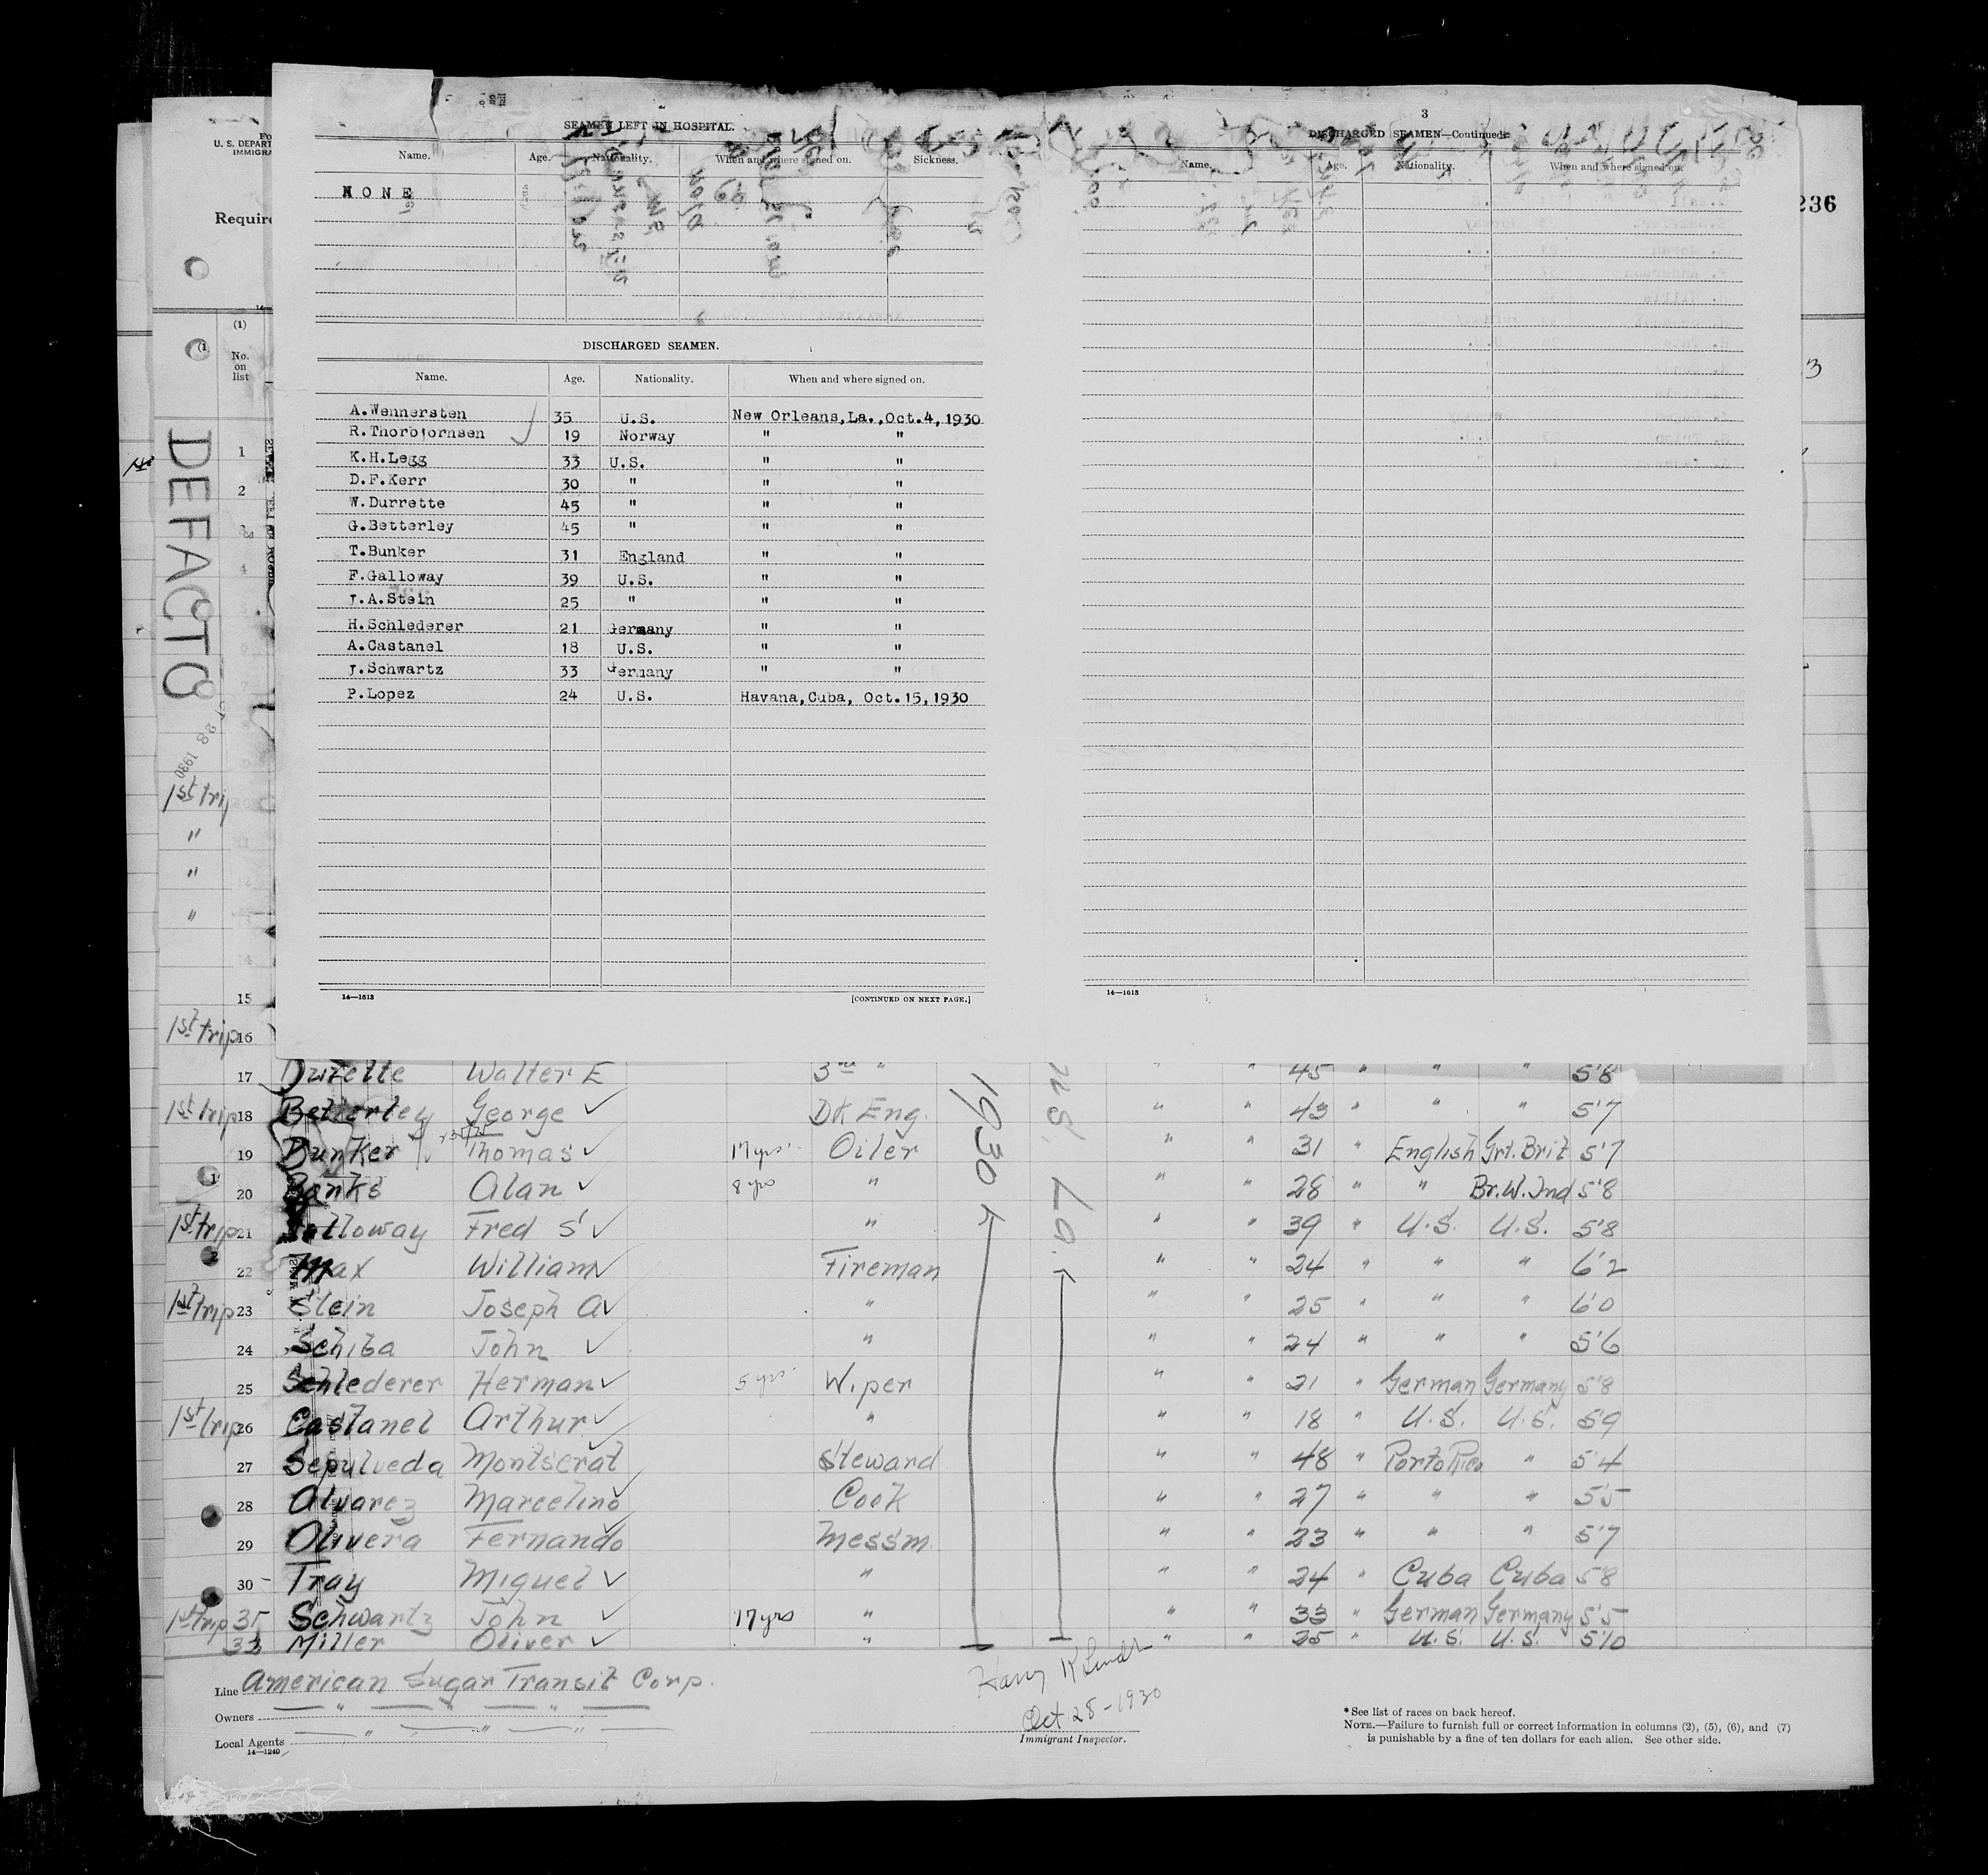 3
SEAMEN LEFT IN HOSPITAL.
Name. Age. Nationality. When and where signed on. Sickness.
NONE
DISCHARGED SEAMEN.
Name. Age. Nationality. When and where signed on.
A.Wennersten 35 U.S. New Orleans,La.,Oct.4,1930
R.Thorbjornsen 19 Norway " "
K.H.Legg 33 U.S. " "
D.F.Kerr 30 " " "
W.Durrette 45 " " "
G.Betterley 45 " " "
T.Bunker 31 England " "
F.Galloway 39 U.S. " "
J.A.Stein 25 " " "
H.Schlederer 21 Germany " "
A.Castanel 18 U.S. " "
J.Schwartz 33 Germany " "
P.Lopez 24 U.S. Havana,Cuba, Oct.15,1930
14—1613 [CONTINUED ON NEXT PAGE.]
DISCHARGED SEAMEN—Continued.
Name. Age. Nationality. When and where signed on.
14—1613
U. S. DEPART
IMMIGRA
Require
236
(1)
No.
on
list
3
DEFACTO
28 1930
1
2
4
15
1st trip
"
"
"
1st trip 16
17 Walter E 3rd " " " 45 " " 5'8
1st trip 18 Betterley George DK Eng. " " 43 " " " 5'7
19 Bunker Thomas 17 yrs Oiler " " 31 " English Grt. Brit 5'7
20 Banks Alan 8 yrs " " " 28 " " Br. W. Ind 5'8
1st trip 21 Galloway Fred S " " " 39 " U.S. U.S. 5'8
22 Max William Fireman " " 24 " " " 6'2
1st trip 23 Stein Joseph A " " " 25 " " " 6'0
24 Schiba John " " " 24 " " " 5'6
25 Schlederer Herman 5 yrs Wiper " " 21 " German Germany 5'8
1st trip 26 Castanel Arthur " " " 18 " U.S. U.S. 5'9
27 Sepulveda Montserat Steward " " 48 " Porto Rico " 5'4
28 Alvarez Marcelino Cook " " 27 " " " 5'5
29 Olivera Fernando Messm. " " 23 " " " 5'7
30 Tray Miguel " " " 24 " Cuba Cuba 5'8
1st trip 35 Schwartz John 17 yrs " " " 33 " German Germany 5'5
33 Miller Oliver " " " 25 " U.S. U.S. 5'10
1930
La.
Line American Sugar Transit Corp.
Owners " " " "
Local Agents " " "
14—1240
Harry
Oct. 28-1930
Immigrant Inspector.
* See list of races on back hereof.
NOTE.—Failure to furnish full or correct information in columns (2), (5), (6), and (7)
is punishable by a fine of ten dollars for each alien. See other side.